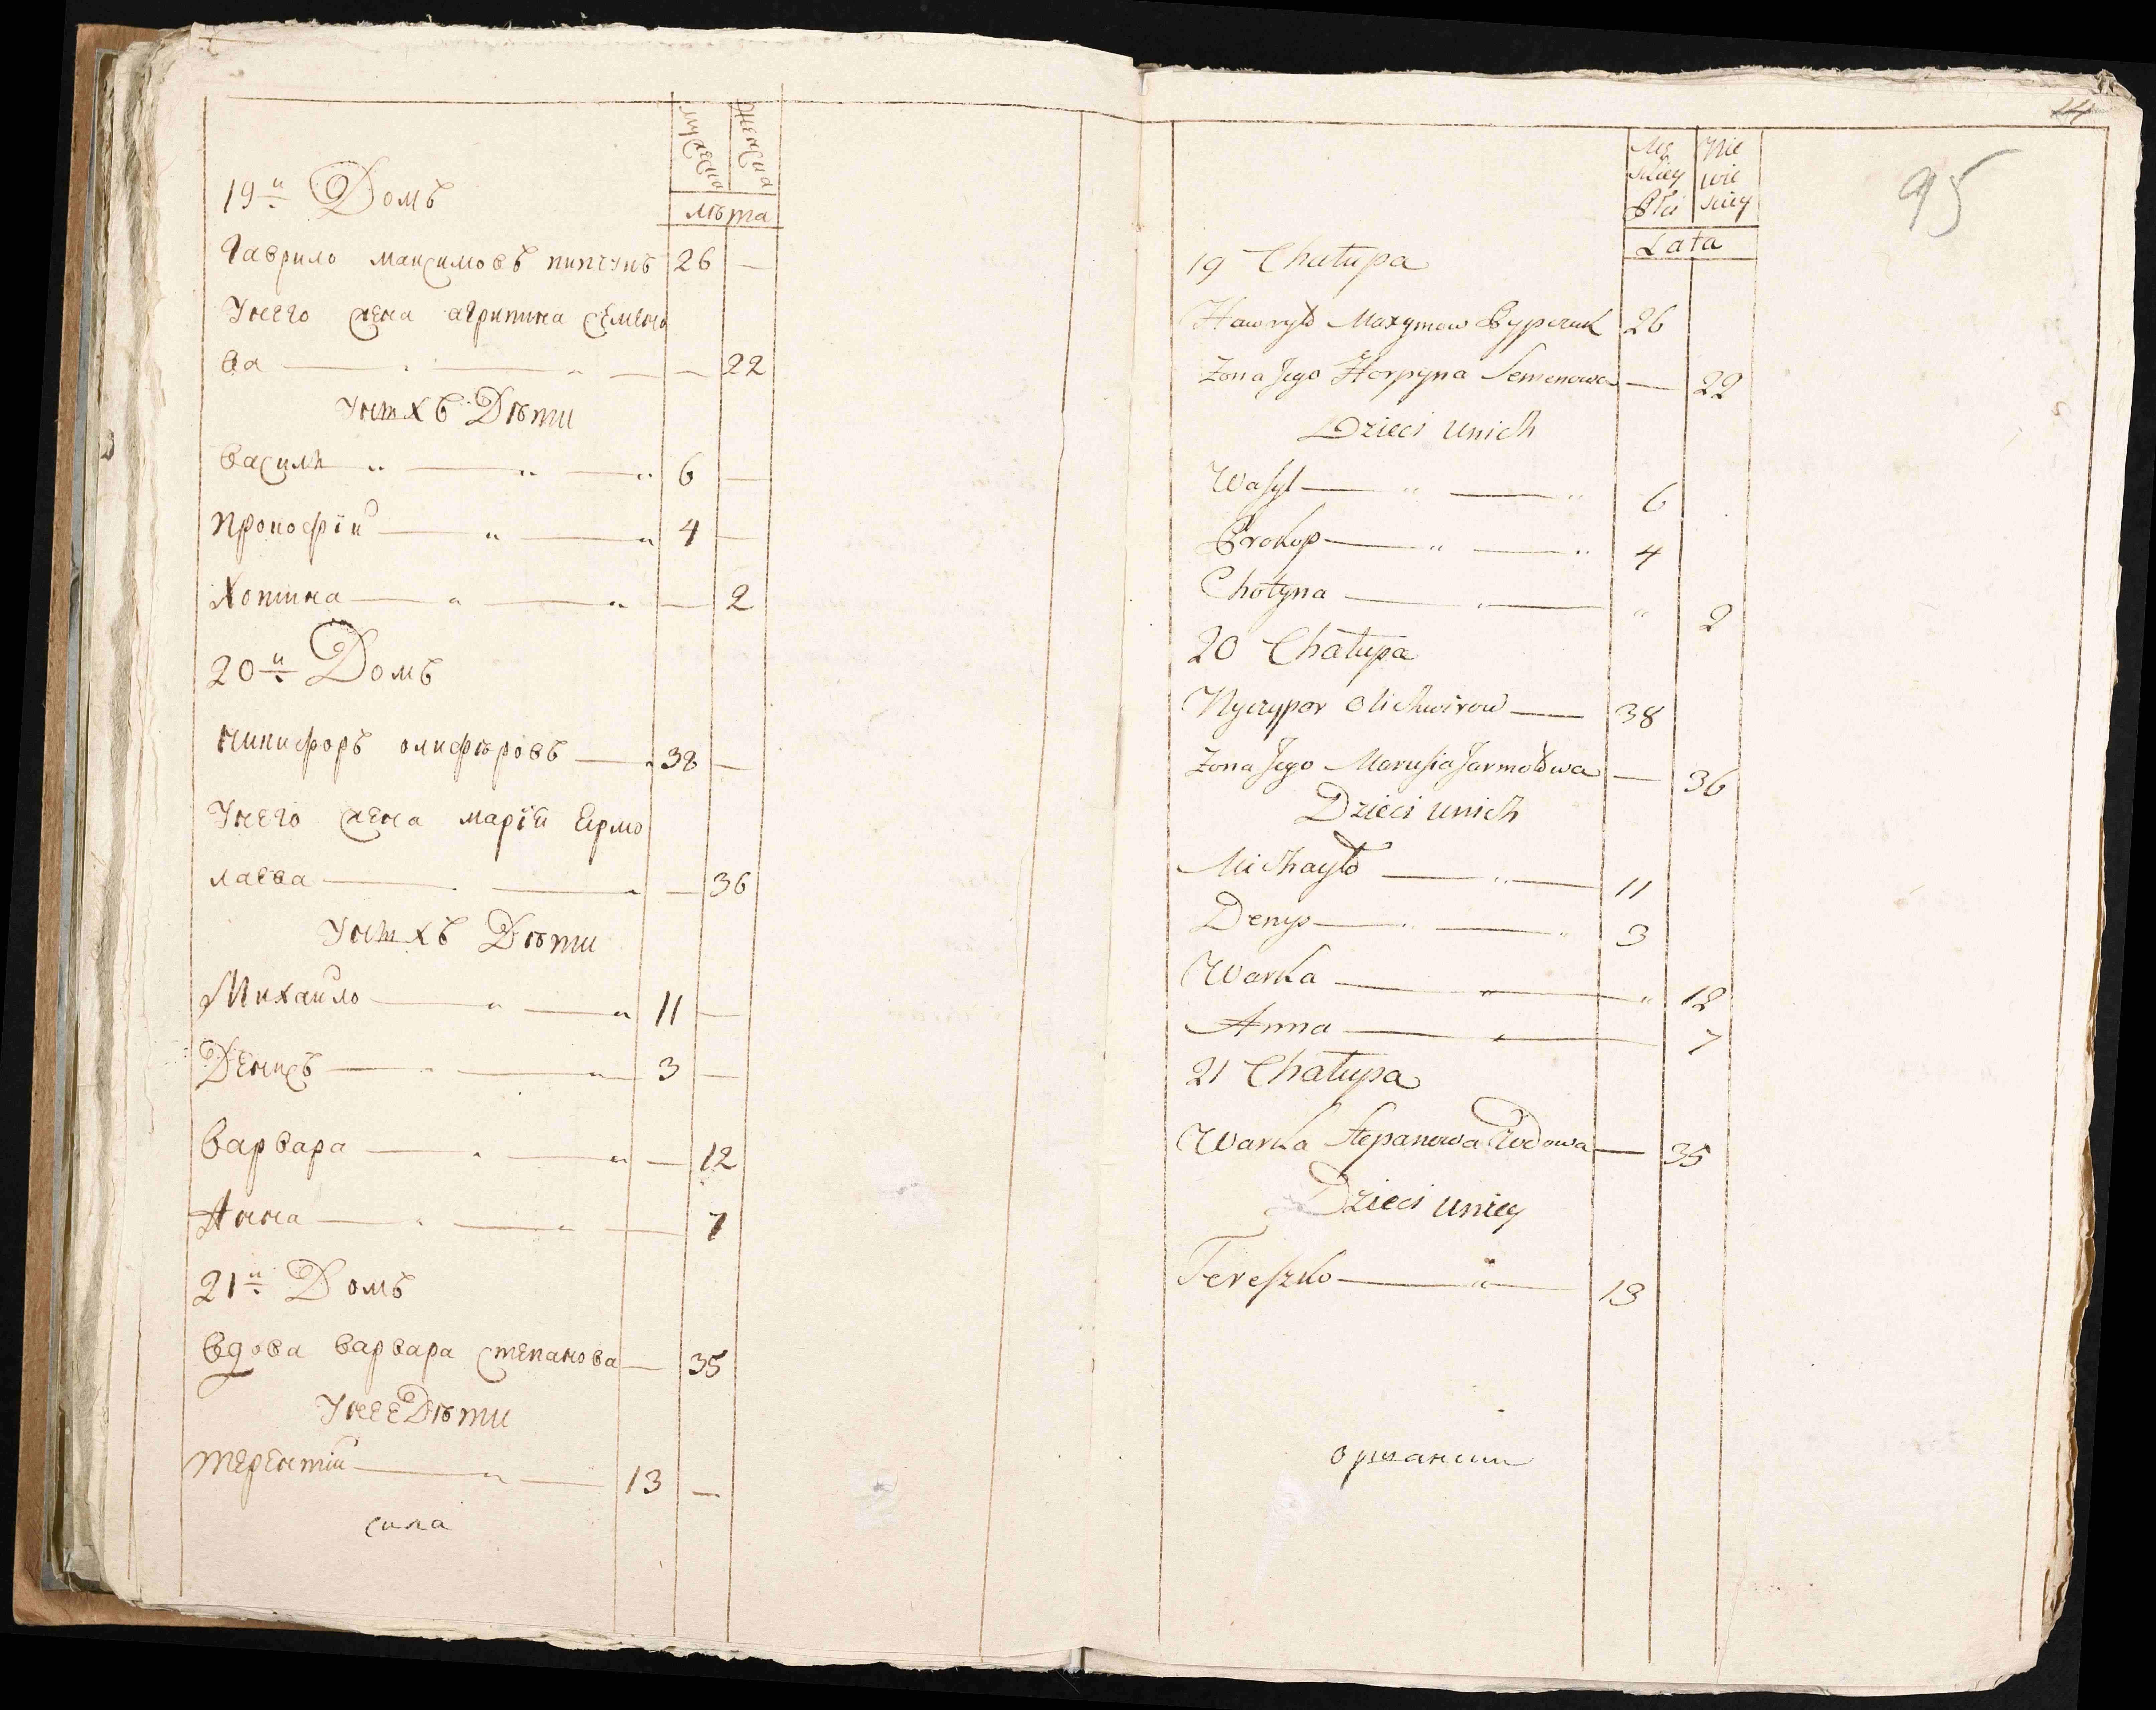 мужеска
женска
лѣта
19й Домъ
Гаврило максимовъ пипчукъ 26 —
Унего жена агрипина семено
ва — — — 22
Унихъ Дѣти
василь — — 6 —
прокофій — — 4 —
Хотина — — — 2
20й Домъ
никифоръ олифѣровъ — 38 —
Унего жена марія Ермо
лаева — — — 36
Унихъ Дѣти
Михайло — — 11 —
Денисъ — — 3 —
варвара — — — 12
Анна — — — 7
21й Домъ
вдова варвара степанова — 35
Унее Дѣти
терентій — — 13 —
сила
14
95
Mę skiey Płci
Nie wie sciey
Lata
19 Chałupa
Hawryło Maxymow Pypczuk 26
Zona Jego Horpyna Semenowa — 22
Dzieci unich
Wasyl — — 6
Prokop — — 4
Chotyna — — " 2
20 Chałupa
Nyczypor Olichwirow — 38
Zona Jego Marusia Jarmołowa — 36
Dzieci unich
Michayło — — 11
Denys — — 3
Warka — — " 12
Anna — — 7
21 Chałupa
Warka Stepanowa Wdowa — 35
Dzieci uniey
Tereszko — — 13